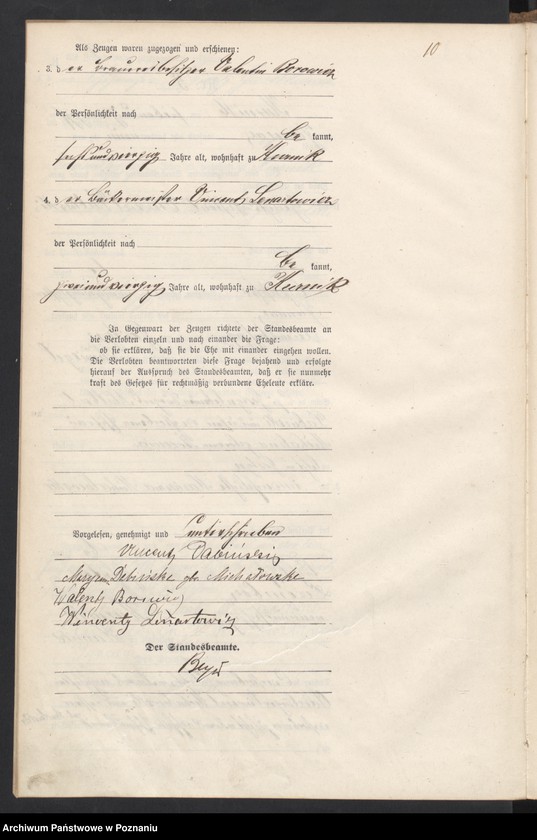 10
Als Zeugen waren zugezogen und erschienen:
3. der Brauereibesitzer Valentin Borowicz
der Persönlichkeit nach
be kannt,
sechsundvierzig Jahre alt, wohnhaft zu Kurnik
4. der Bäckermeister Vincent Lenartowicz
der Persönlichkeit nach
be kannt,
zweiundvierzig Jahre alt, wohnhaft zu Kurnik
In Gegenwart der Zeugen richtete der Standesbeamte an
die Verlobten einzeln und nach einander die Frage:
ob sie erklären, daß sie die Ehe mit einander eingehen wollen.
Die Verlobten beantworteten diese Frage bejahend und erfolgte
hierauf der Ausspruch des Standesbeamten, daß er sie nunmehr
kraft des Gesetzes für rechtmäßig verbundene Eheleute erkläre.
Vorgelesen, genehmigt und unterschrieben
Vincenty Dabiński
Maryan Debińska geb Michałowska
Walenty Borowicz
Wincenty Linartowicz
Der Standesbeamte.
Archiwum Państwowe w Poznaniu